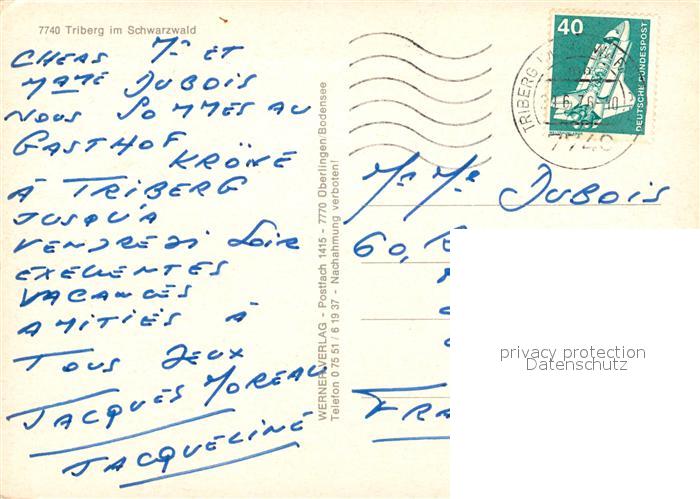 7740 Triberg im Schwarzwald
CHERS Mr ET
MAME DUBOIS
NOUS SOMMES AU
GASTHOF KRÖNE
À TRIBERG
JUSQU'À
VENDREDI SOIR
EXELENTES
VACANCES
AMITIÉS À
TOUS DEUX
JACQUES MOREAU
JACQUELINE
WERNER-VERLAG - Postfach 1415 - 7770 Überlingen/Bodensee
Telefon 0 75 51 / 6 19 37 - Nachahmung verboten!
40
DEUTSCHE BUNDESPOST
TRIBERG
7740
Mr Me DUBOIS
60, R
FRA
privacy protection
Datenschutz